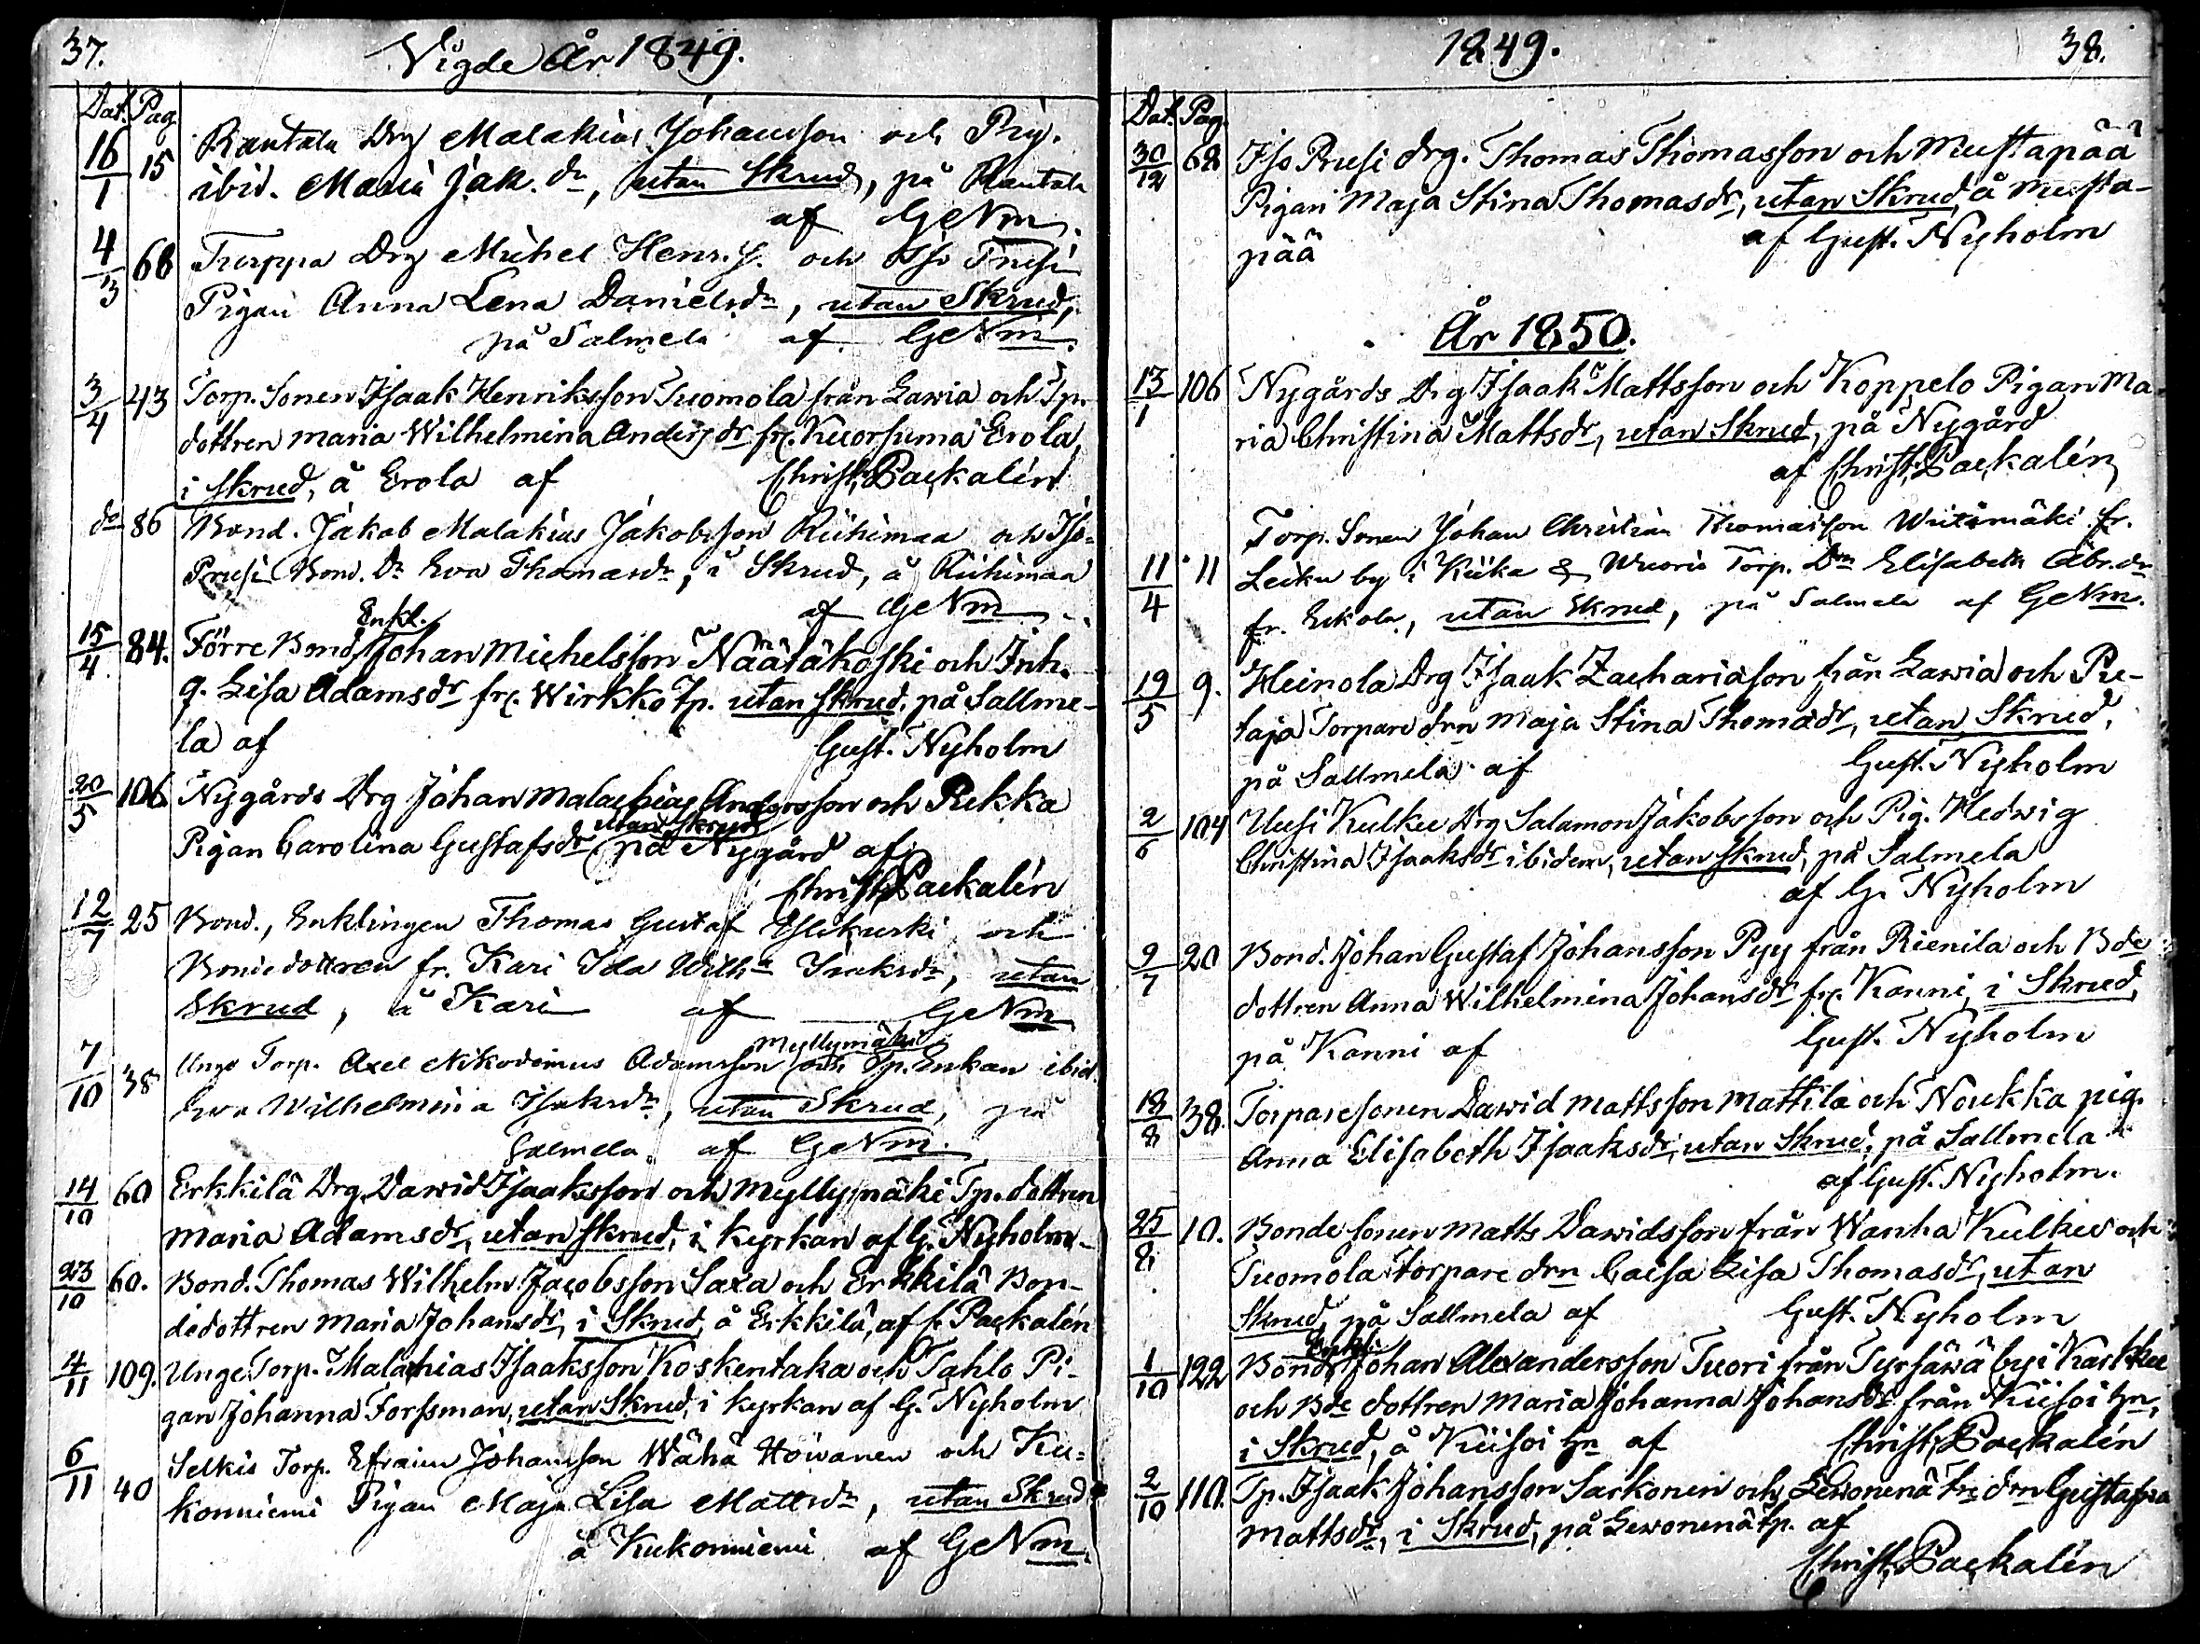 37.
Vigde År 1849.
Dat. Pag.
16/1 15 Rantala Drg Malakias Johansson och Pig.
ibid. Maria Jak. dr, utan Skrud, på Rantala
af GeNm.
4/3 68 Turppa Drg Michel Henr. s. och Iso Prusi
Pigan Anna Lena Danielsdr, utan Skrud,
på Salmela af GeNm.
3/4 43 Torp. Sonen Isaak Henriksson Tuomola från Lawia och Tp.
dottren Maria Wilhelmina Andersdr fr. Kuorsuma Erola,
i Skrud, å Erola af Christ. Packalén
do 86 Bond. Jakob Malakias Jakobsson Riihimaa och Iso-
Prusi Bond. Dr Eva Thomasdr, i Skrud, å Riihimaa
af GeNm
15/4 84. Förre Bond. Enkl. Johan Michelsson Näätäkoski och Inh.
q. Lisa Adamsdr fr. Wirkko Tp. utan Skrud, på Sallme-
la af Gust. Nyholm
20/5 106 Nygårds Drg Johan Malachias Andersson och Pukka
Pigan Carolina Gustafsdr utan Skrud på Nygård af
Christ. Packalén
12/7 25 Bond., Enklingen Thomas Gustaf och
Bondedottren fr. Kari Ida Wilh:a Isaksdr, utan
Skrud, å Kari af GeNm
7/10 38 Unge Torp. Axel Nikodemus Adamsson Myllymäki och Tp. Enkan ibid.
Eva Wilhelmina Isaksdr, utan Skrud, på
Salmela af GeNm.
14/10 60 Erkkilä Drg Dawid Isaaksson och Myllymäki Tp. dottren
Maria Adamsdr, utan Skrud, i kyrkan af G. Nyholm
23/10 60. Bond. Thomas Wilhelm Jacobsson Saxa och Erkkilä Bon-
dedottren Maria Johansdr, i Skrud, å Erkkilä, af C. Packalén
4/11 109. Unge Torp. Malachias Isaaksson Koskentaka och Tahlo Pi-
gan Johanna Forssman, utan Skrud, i kyrkan af G. Nyholm
6/11 40 Selkis Torp. Efraim Johansson Wähä Howanen och Ku-
konniemi Pigan Maja Lisa Mattsdr, utan Skrud
å Kukonniemi af GeNm.
1849.
38.
Dat. Pag.
30/12 68 Iso Prusi drg. Thomas Thomasson och Mustapää
Pigan Maja Stina Thomasdr, utan Skrud, å Musta-
pää af Gust. Nyholm
År 1850.
13/1 106 Nygårds Drg Isaak Mattsson och Koppelo Pigan Ma-
ria Christina Mattsdr, utan Skrud, på Nygård
af Christ. Packalén
11/4 11 Torp. Sonen Johan Christian Thomasson Wiitamäki fr.
Leiku by i Kiika & Wuorio Torp. Drn Elisabeth Abr.dr
fr. Eskola, utan Skrud, på Salmela af GeNm.
19/5 9. Heinola Drg Isaak Zachariasson från Lawia och Pu-
taja Torpare drn Maja Stina Thomasdr, utan Skrud,
på Sallmela af Gust. Nyholm
2/6 104 Uusi Kulkee Drg Salamon Jakobsson och Pig. Hedwig
Christina Isaaksdr ibidem, utan Skrud, på Salmela
af G. Nyholm
9/7 20 Bond. Johan Gustaf Johansson Pyy från Rienila och Bde
dottren Anna Wilhelmina Johansdr fr. Kanni, i Skrud,
på Kanni af Gust. Nyholm
18/8 38. Torparesonen Dawid Mattsson Mattila och Noukka pig.
Anna Elisabeth Isaaksdr, utan Skrud, på Sallmela
af Gust. Nyholm.
25/8 10. Bondesonen Matts Dawidsson från Wanha Kulkee och
Tuomola torpare drn Caisa Lisa Thomasdr, utan
Skrud, på Sallmela af Gust. Nyholm
1/10 122 Bond. Enkl. Johan Alexandersson Tuori från Tyrsäwä by i Karkku
och Bde dottren Maria Johanna Johansdr från Kiisoi hn,
i Skrud, å Kiisoi hn af Christ. Packalén
2/10 110. Tp. Isaak Johansson Sarkonen och Lewonenä drn Gustafwa
Mattsdr, i Skrud, på Lewonenä tp. af
Christ. Packalén